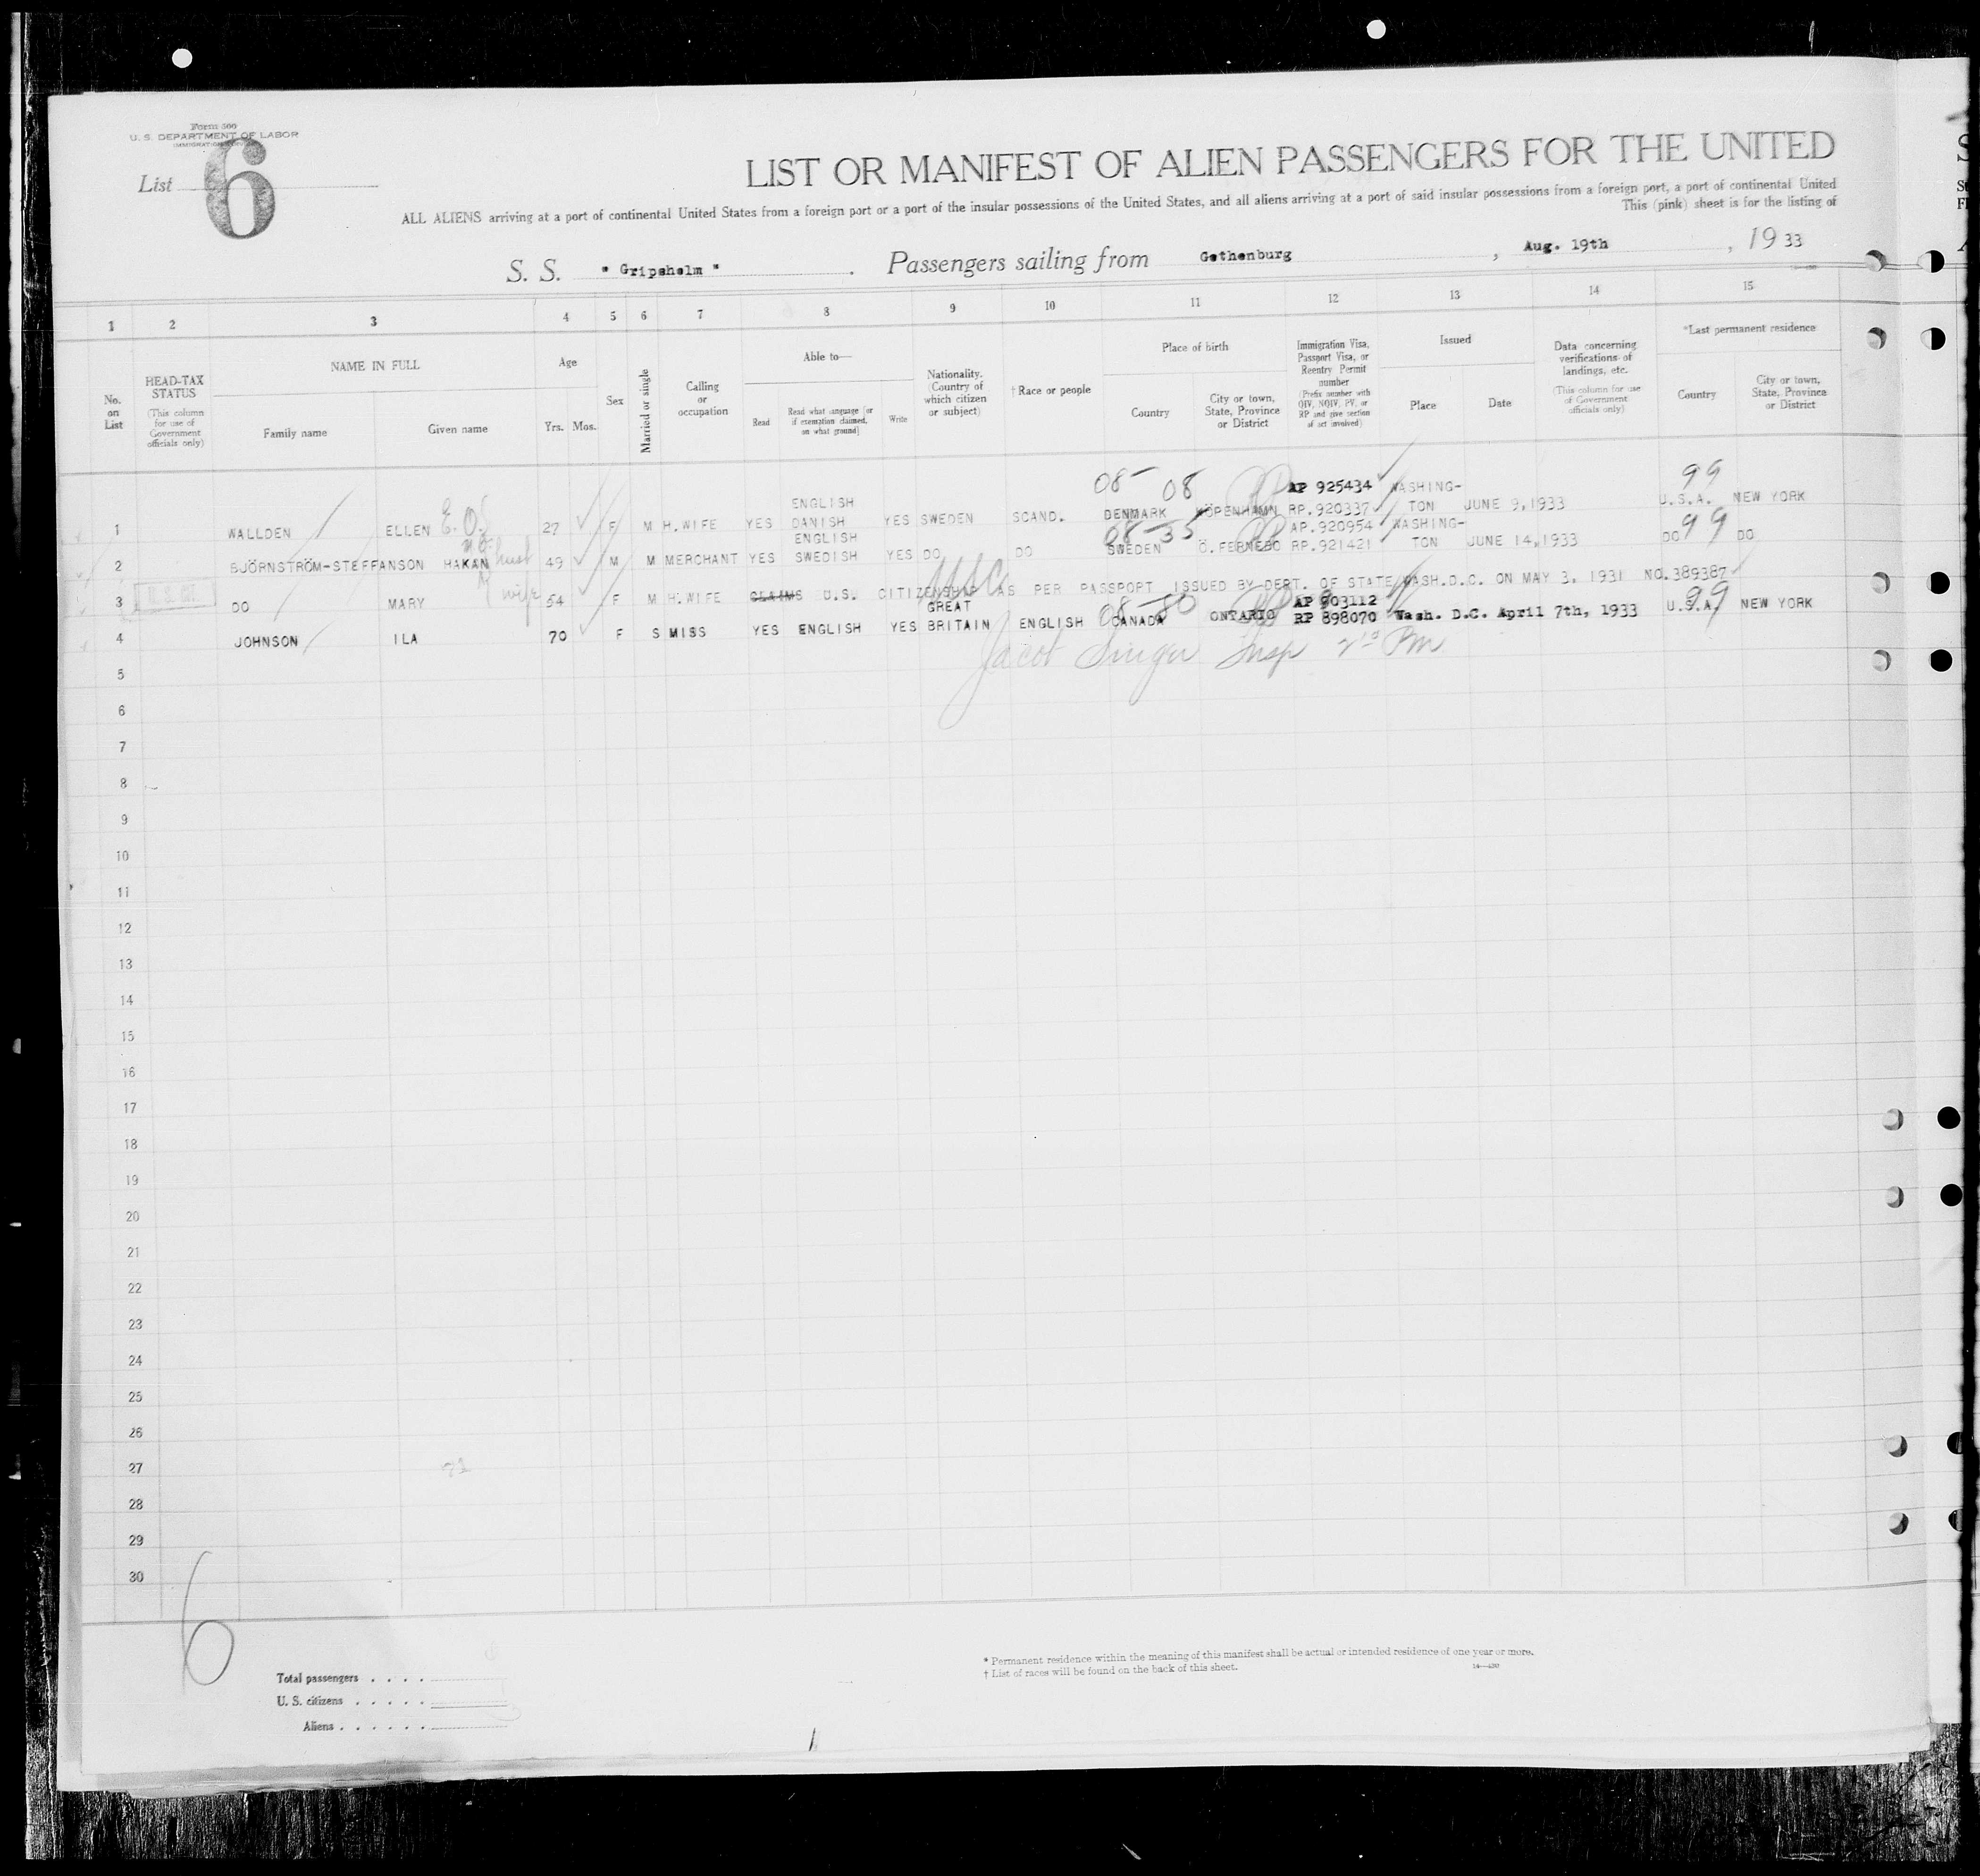 Form 500
U. S. DEPARTMENT OF LABOR
List 6
LIST OR MANIFEST OF ALIEN PASSENGERS FOR THE UNITED
ALL ALIENS arriving at a port of continental United States from a foreign port or a port of the insular possessions of the United States, and all aliens arriving at a port of said insular possessions from a foreign port, a port of continental United
This (pink) sheet is for the listing of
S. S. " Gripsholm " . Passengers sailing from Gothenburg , Aug. 19th , 19 33
1 2 3 4 5 6 7 8 9 10 11 12 13 14 15
No. on List
HEAD-TAX STATUS
(This column for use of Government officials only)
NAME IN FULL
Family name Given name
Age
Yrs. Mos.
Sex
Married or single
Calling or occupation
Able to—
Read
Read what language [or if exemption claimed, on what ground]
Write
Nationality. (Country of which citizen or subject)
† Race or people
Place of birth
Country
City or town, State, Province or District
Immigration Visa, Passport Visa, or Reentry Permit number
(Prefix number with QIV, NQIV, PV, or RP and give section of act involved)
Issued
Place Date
Data concerning verifications of landings, etc.
(This column for use of Government officials only)
*Last permanent residence
Country
City or town, State, Province or District
08 08 AP 925434 WASHING- 99
ENGLISH
1 WALLDEN ELLEN E. O. 27 F M H.WIFE YES DANISH YES SWEDEN SCAND. DENMARK KÖPENHAMN RP.920337 TON JUNE 9,1933 U.S.A. NEW YORK
ENGLISH 08-35 AP.920954 WASHING-
2 BJÖRNSTRÖM-STEFFANSON HAKAN husb 49 M M MERCHANT YES SWEDISH YES DO DO SWEDEN Ö.FERNEBO RP.921421 TON JUNE 14,1933 DO 99 DO
3 U.S. CIT. DO MARY wife 54 F M H.WIFE CLAIMS U.S. CITIZENSHIP AS PER PASSPORT ISSUED BY DEPT. OF STATE WASH.D.C. ON MAY 3, 1931 NO.389387
USC
GREAT 08-80 AP 903112 99
4 JOHNSON ILA 70 F S MISS YES ENGLISH YES BRITAIN ENGLISH CANADA ONTARIO RP 898070 Wash. D.C. April 7th, 1933 U.S.A. NEW YORK
Jacob Singer Insp
5
6
7
8
9
10
11
12
13
14
15
16
17
18
19
20
21
22
23
24
25
26
27
28
29
30
6
Total passengers . . . .
U. S. citizens . . . . .
Aliens . . . . . .
* Permanent residence within the meaning of this manifest shall be actual or intended residence of one year or more.
† List of races will be found on the back of this sheet.